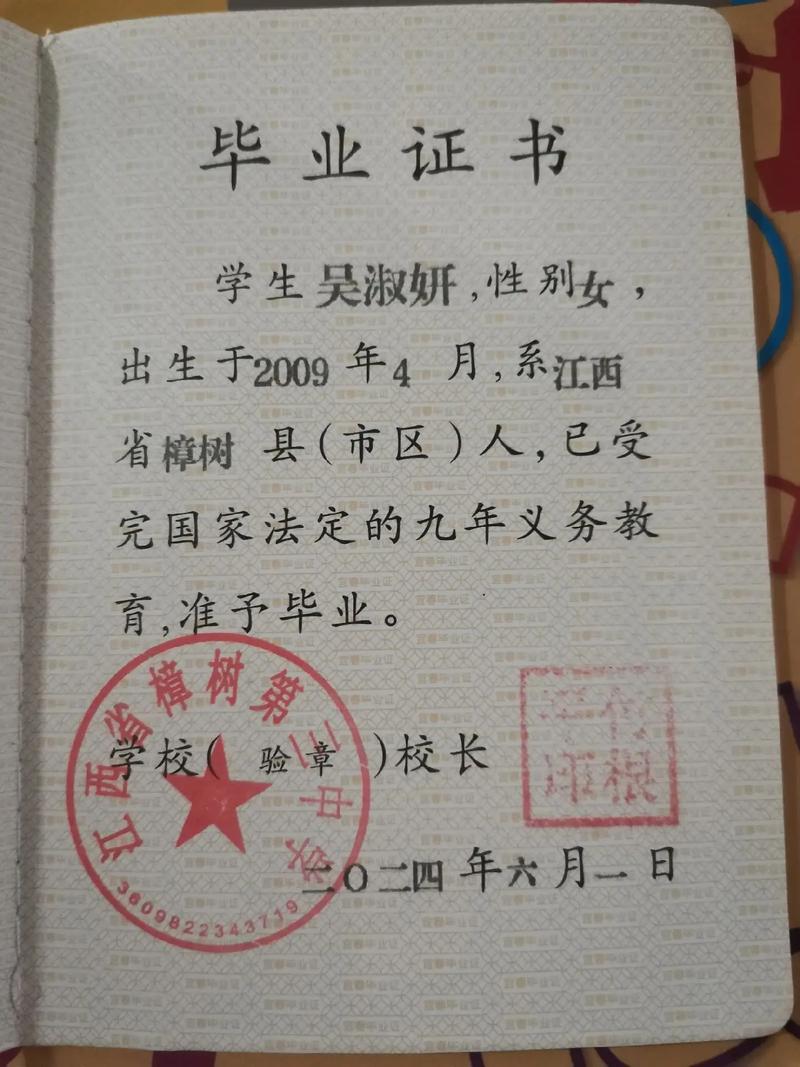 毕业证书
学生吴淑妍,性别女,
出生于2009年4月,系江西
省樟树县(市区)人,已受
完国家法定的九年义务教
育,准予毕业。
江西省樟树第三中学
学校(验章)校长
二〇二四年六月一日
3609822343719
宜春毕业证